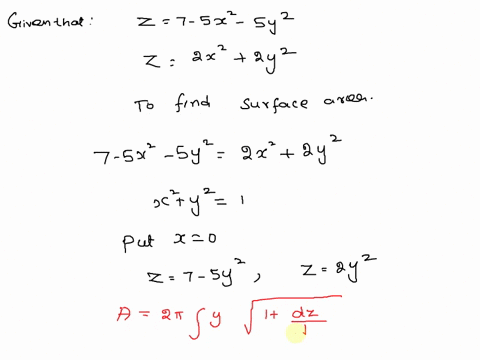 Given that: Z = 7-5x² - 5y²
Z = 2x² + 2y²
To find surface area.
7-5x² - 5y² = 2x² + 2y²
x² + y² = 1
Put x = 0
Z = 7-5y² , Z = 2y²
A = 2π ∫ y √(1 + dz/1